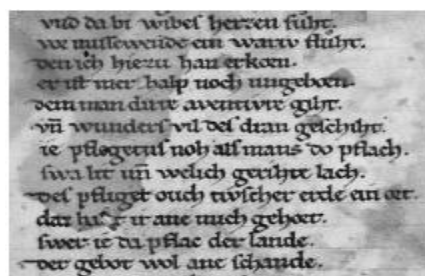 vnd da bi wibes herzen suht.
we missewende ein wariv fluht.
den ich hiezu han erkorn.
er ist mer halp noch ungeborn.
dem man dirre aventivre giht.
vñ wunders vil des dran geschiht.
ie pflegetus noh als mans do pflach.
swa lit uñ welsch gerihte lach.
des pfliget ouch tivscher erde ein ort.
daz ir ane mich gehort.
swer ie da pflac der lande.
der gebot wol ane schande.